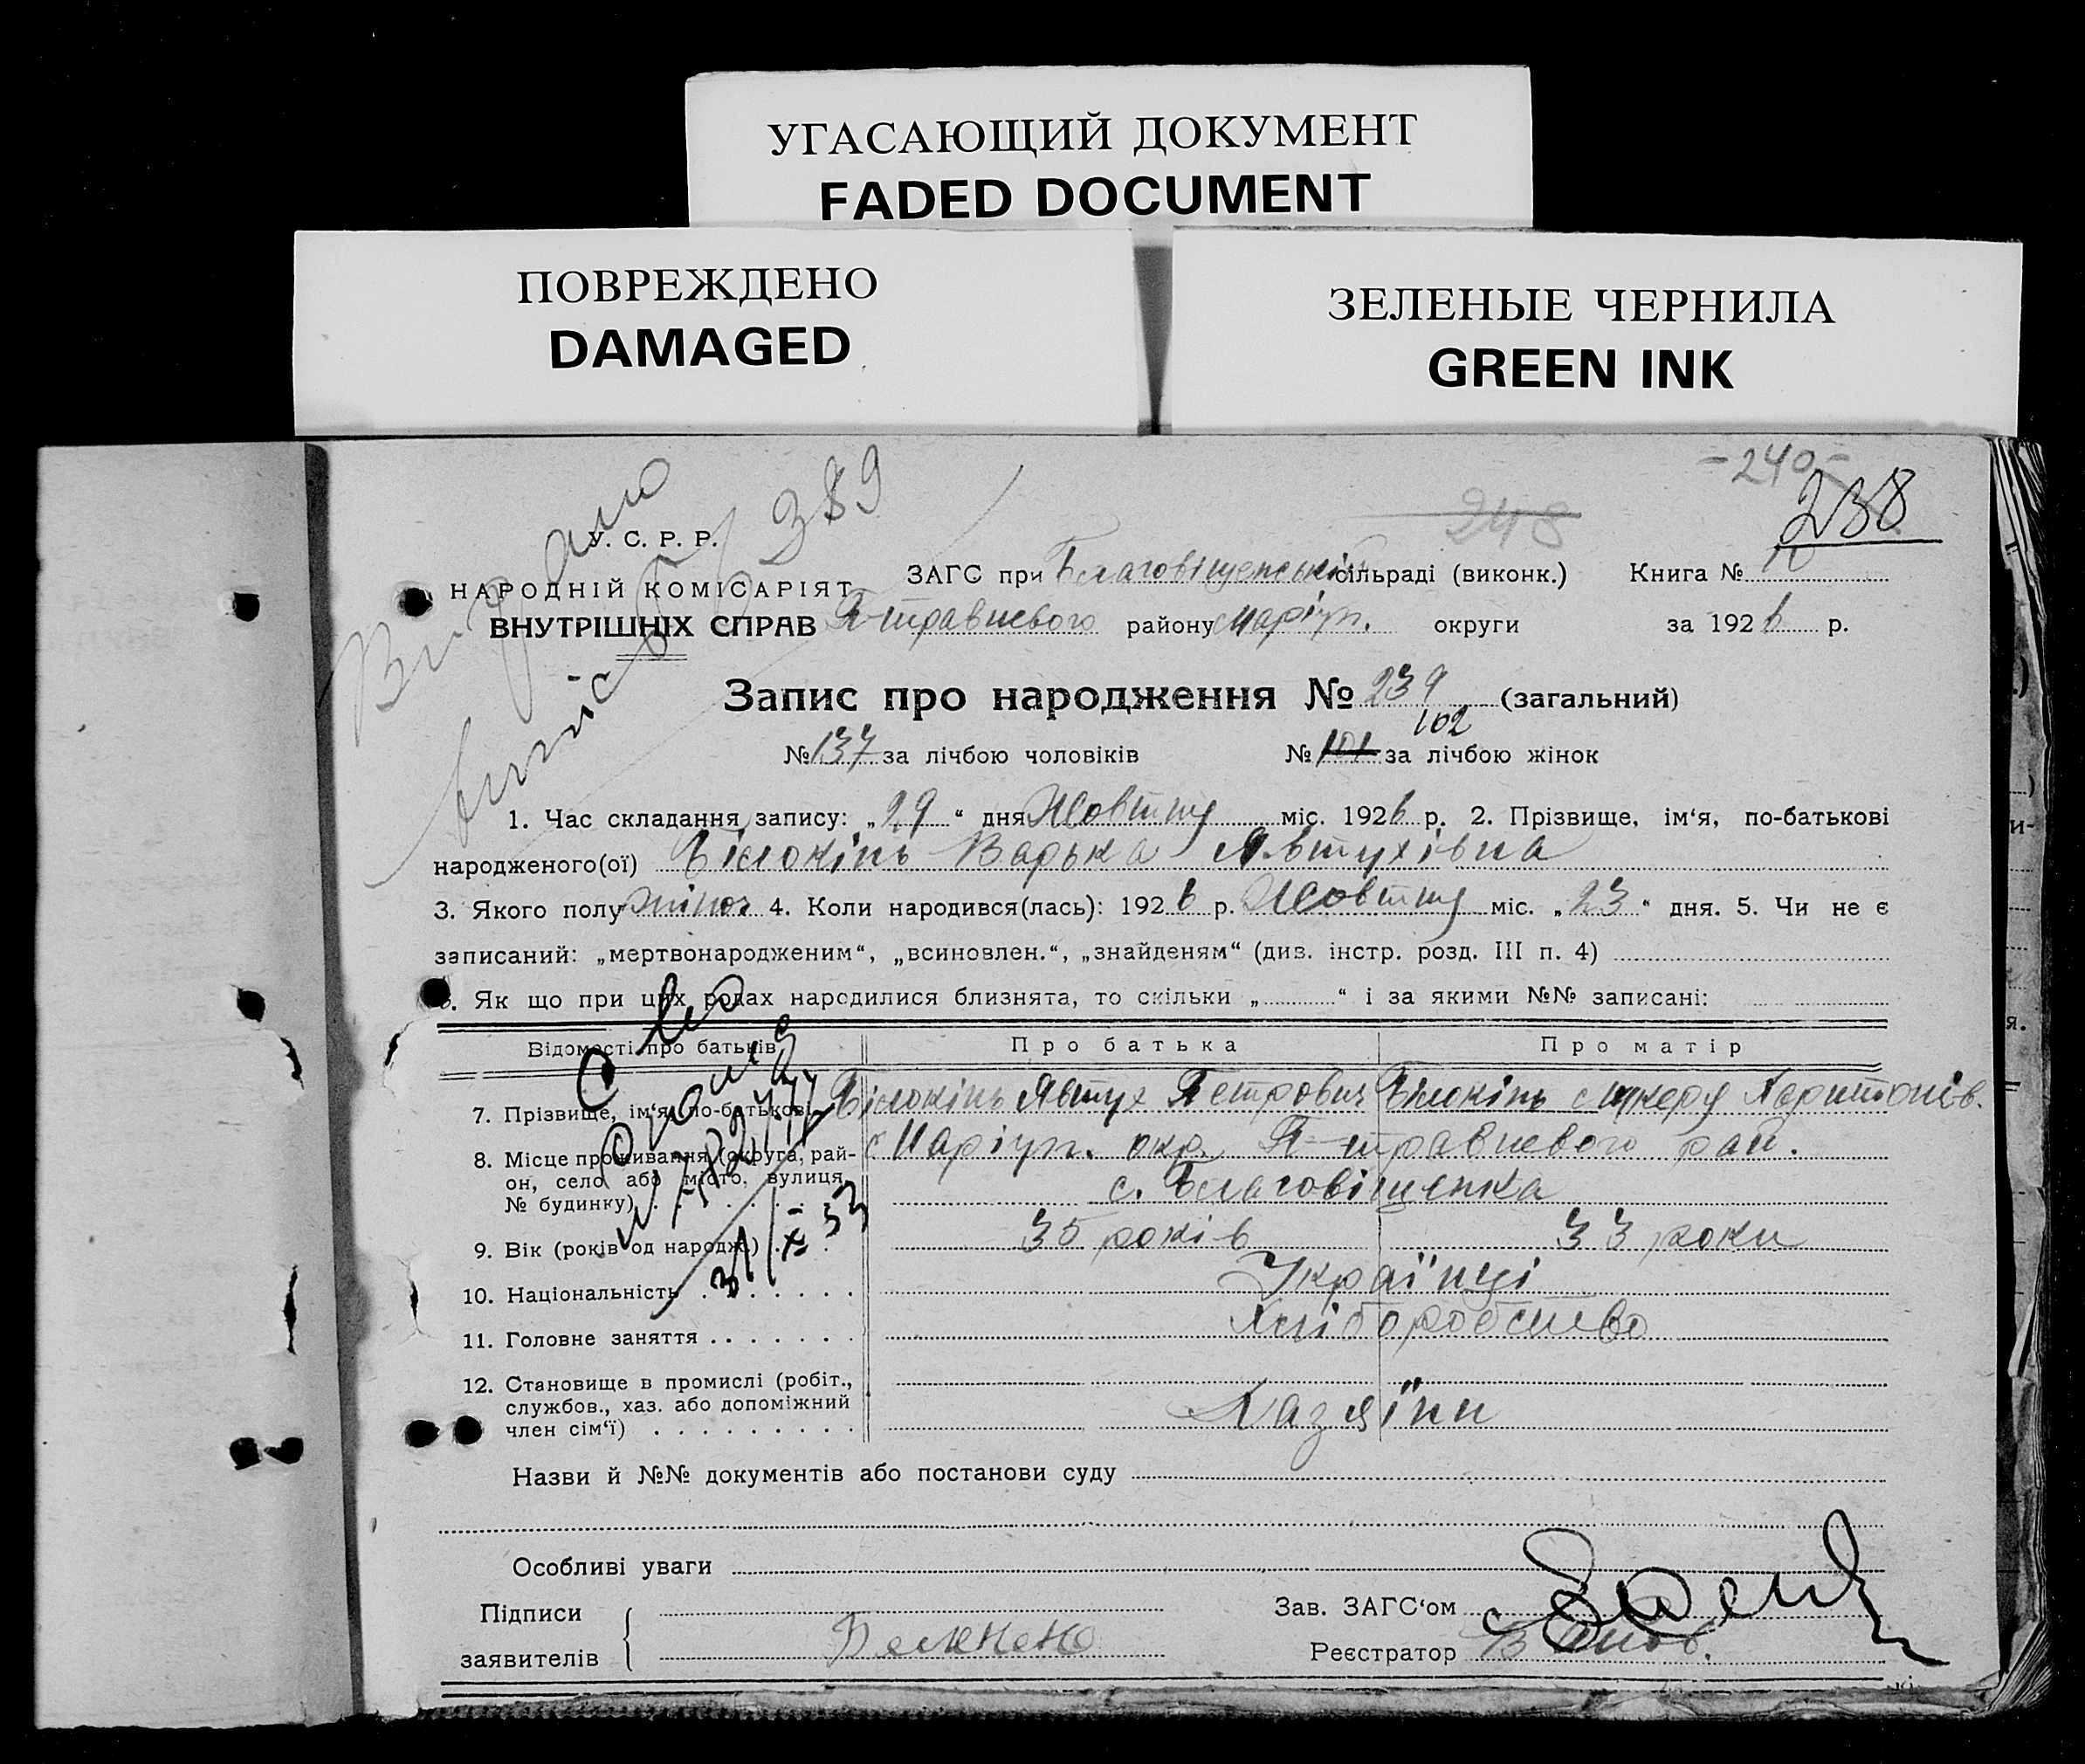 УГАСАЮЩИЙ ДОКУМЕНТ
FADED DOCUMENT
ПОВРЕЖДЕНО
DAMAGED
ЗЕЛЕНЫЕ ЧЕРНИЛА
GREEN INK
-240-
238
248
389
У. С. Р. Р.
НАРОДНІЙ КОМІСАРІЯТ
ВНУТРІШНІХ СПРАВ
ЗАГС при Благовіщенській сільраді (виконк.) Книга №
П-травневого району Маріуп. округи за 1926 р.
Запис про народження № 239 (загальний)
102
№ 137 за лічбою чоловіків № 101 за лічбою жінок
1. Час складання запису: „29“ дня Жовтня міс. 1926 р. 2. Прізвище, ім‘я, по-батькові
народженого(ої) Білокінь Варька Явтухівна
3. Якого полу жіноч 4. Коли народився(лась): 1926 р. Жовтня міс. „23“ дня. 5. Чи не є
записаний: „мертвонародженим“, „всиновлен.“, „знайденям“ (див. інстр. розд. III п. 4)
6. Як що при цих родах народилися близнята, то скільки „ “ і за якими №№ записані:
Відомості про батьків Про батька Про матір
7. Прізвище, ім‘я, по-батькові Білокінь Явтух Петрович Білокінь
8. Місце проживання (округа, рай-
он, село або місто, вулиця,
№ будинку)
Маріуп. окр. П-травневого рай.
с. Благовіщенка
9. Вік (років од народж.) 35 років 33 роки
10. Національність Українці
11. Головне заняття Хліборобство
12. Становище в промислі (робіт.,
службов., хаз. або допоміжний
член сім‘ї)
Хазяїни
Назви й №№ документів або постанови суду
Особливі уваги
Підписи
заявителів
Зав. ЗАГС‘ом
Реєстратор